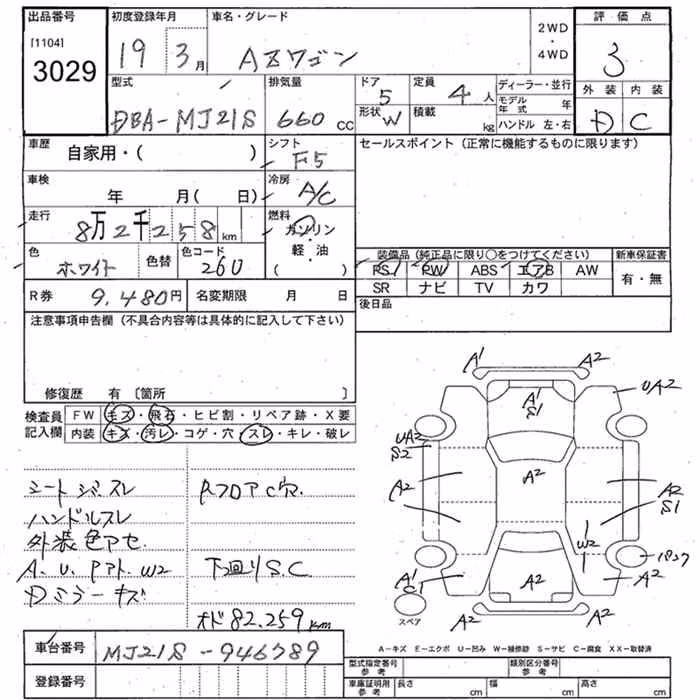 出品番号 初度登録年月 車名・グレード 2WD・4WD 評価点
[1104] 3029 19 3月 AZワゴン 3
型式 排気量 ドア 定員 ディーラー・並行 外装 内装
DBA-MJ21S 660cc 5 4人 モデル年式 年 D C
形状 W 積載 kg ハンドル 左・右
車歴 自家用・( ) シフト F5 セールスポイント (正常に機能するものに限ります)
車検 年 月( 日) 冷房 A/C
走行 8万2千258km 燃料 ガソリン・軽油
色 ホワイト 色替 色コード 26U
装備品(純正品に限り○をつけてください) 新車保証書
PS PW ABS エアB AW 有・無
SR ナビ TV カワ
R券 9,480円 名変期限 月 日 後日品
注意事項申告欄(不具合内容等は具体的に記入して下さい)
修復歴 有〔箇所 〕
検査員記入欄 FW キズ・飛石・ヒビ割・リペア跡・X要
内装 キズ・汚レ・コゲ・穴・スレ・キレ・破レ
シートジミスレ
ハンドルスレ
外装色アセ
A.U.Pアト.W2
Dミラーキズ
PフロアC穴
下回りS.C
オド82.259km
A1 A2
A1 S1 UA2
UA2 S2
A2 A2 A2 A2 S1
W2
A1 C1 A2 A2 パンク
A2 A2
スペア
A-キズ E-エクボ U-凹み W-補修跡 S-サビ C-腐食 XX-取替済
車台番号 MJ21S-946789
登録番号
型式指定番号 参考 類別区分番号 参考
車庫証明用 参考 長さ cm 幅 cm 高さ cm